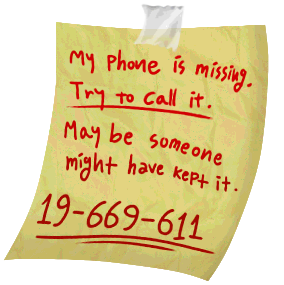 My phone is missing.
Try to call it.
May be someone
might have kept it.
19-669-611